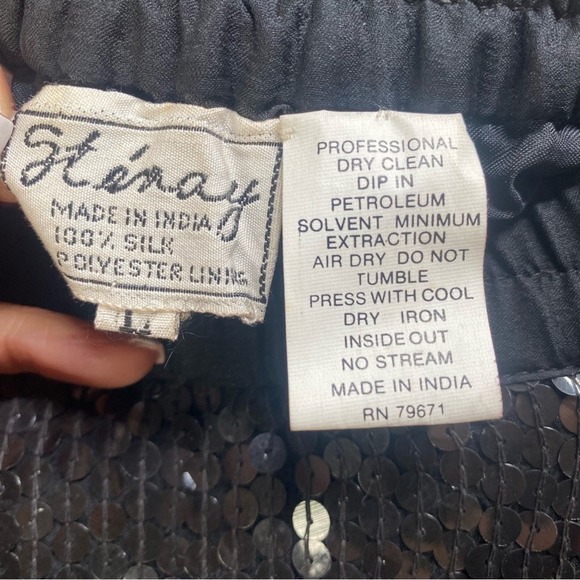 Sténay
MADE IN INDIA
100% SILK
POLYESTER LINING
PROFESSIONAL
DRY CLEAN
DIP IN
PETROLEUM
SOLVENT MINIMUM
EXTRACTION
AIR DRY DO NOT
TUMBLE
PRESS WITH COOL
DRY IRON
INSIDE OUT
NO STREAM
MADE IN INDIA
RN 79671